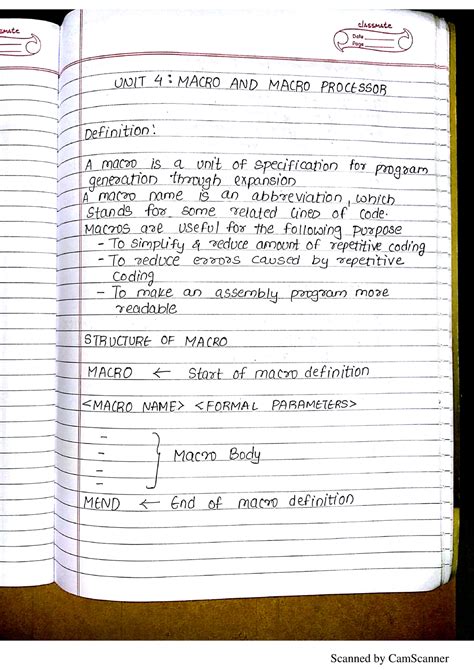 classmate
Date
Page
UNIT 4 : MACRO AND MACRO PROCESSOR
Definition:
A macro is a unit of specification for program
generation through expansion
A macro name is an abbreviation, which
stands for some related lines of code.
Macros are useful for the following purpose
- To simplify & reduce amount of repetitive coding
- To reduce errors caused by repetitive
coding
- To make an assembly program more
readable
STRUCTURE OF MACRO
MACRO ← Start of macro definition
<MACRO NAME> <FORMAL PARAMETERS>
-
-
- Macro Body
-
MEND ← End of macro definition
Scanned by CamScanner